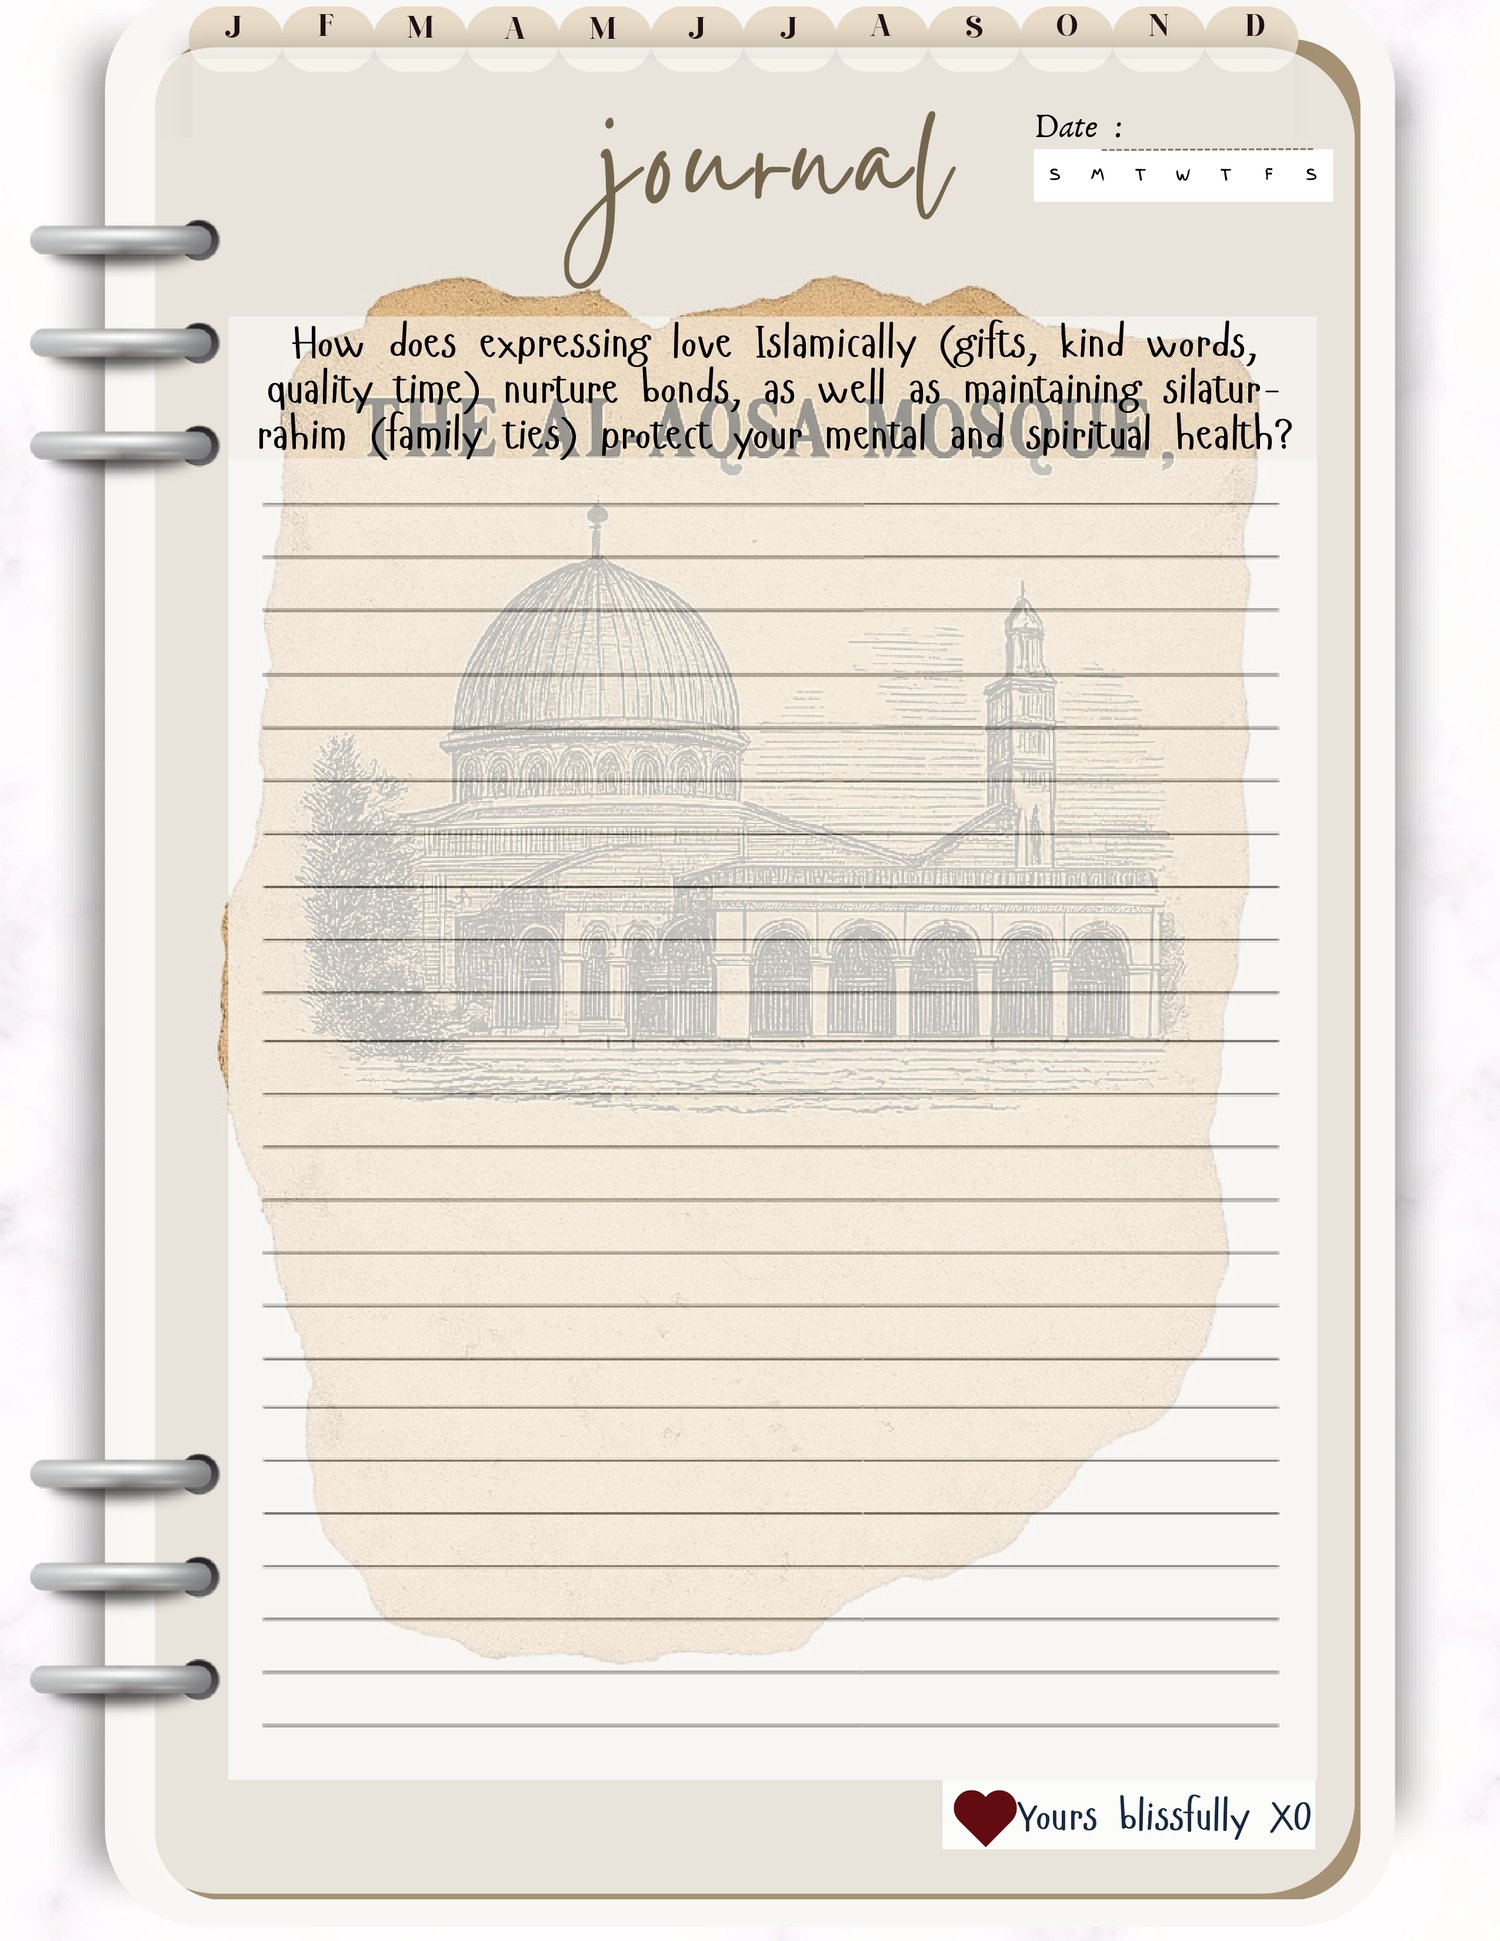 J F M A M J J A S O N D
journal
Date :
S M T W T F S
How does expressing love Islamically (gifts, kind words,
quality time) nurture bonds, as well as maintaining silatur-
rahim (family ties) protect your mental and spiritual health?
THE AL-AQSA MOSQUE,
Yours blissfully XO